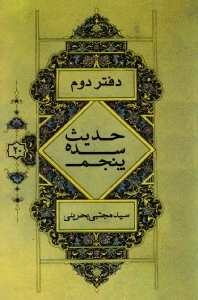 دفتر دوم
حدیث
سده
پنجم
۲۰
سید مجتبی بحرینی